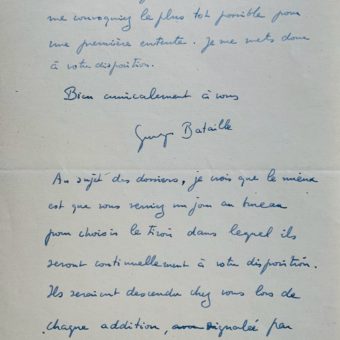 me convoquiez le plus tôt possible pour
une première entente. Je me mets donc
à votre disposition.
Bien amicalement à vous
Georges Bataille
Au sujet des dossiers, je crois que le mieux
est que vous veniez un jour au bureau
pour choisir le tiroir dans lequel ils
seront continuellement à votre disposition.
Ils seraient descendus chez vous lors de
chaque addition, signalée par